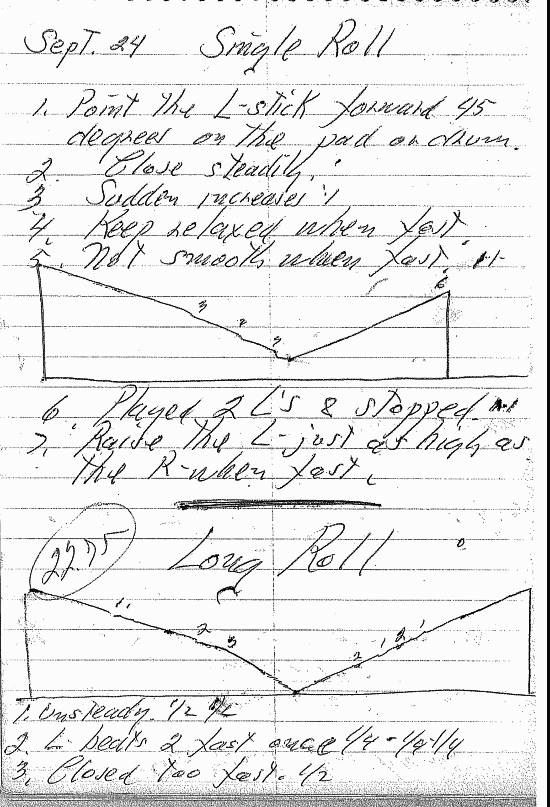 Sept. 24 Single Roll
1. Point the L-stick forward 45
degrees on the pad or drum.
2. Close steadily.
3 Sudden increases
4. Keep relaxed when fast.
5. Not smooth when fast.
3
2
6
6. Played 2 L's & stopped.
7. Raise the L-just as high as
the R-when fast.
22.75 Long Roll
1
2
3
2
1
3
1
1. Unsteady. 1/2
2. L beats 2 fast once 1/4-1/2-1/4
3. Closed too fast. 1/2